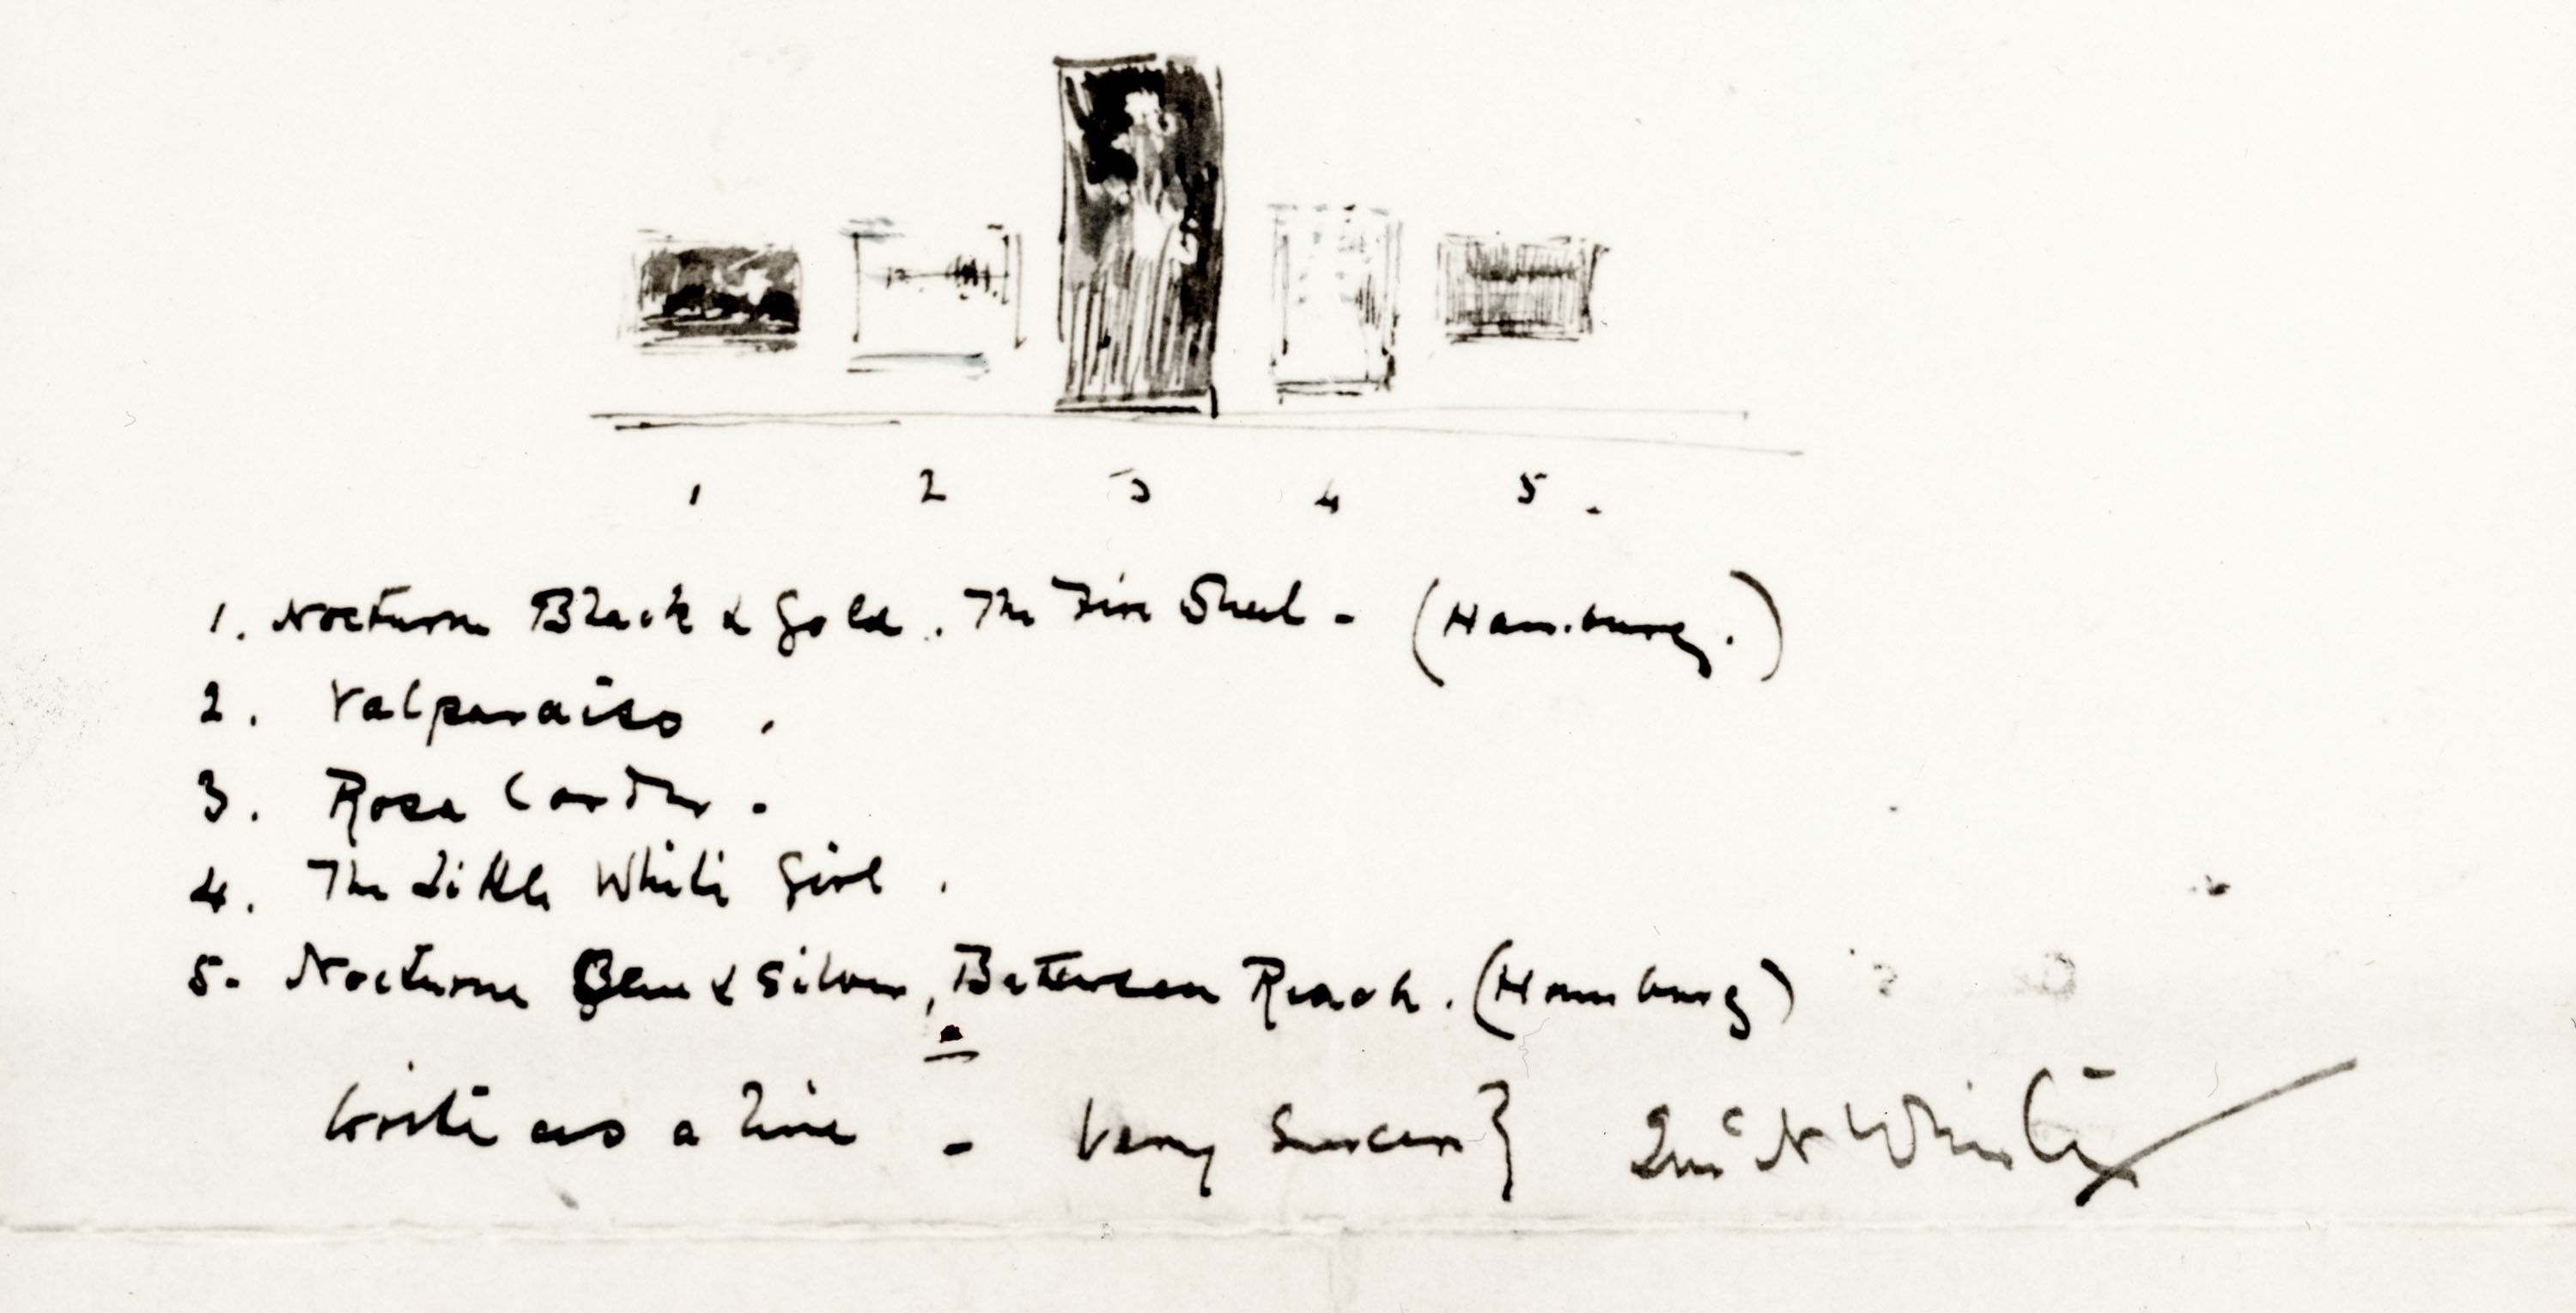 1 2 3 4 5.
1. Nocturne Black & Gold. The Fire Wheel - (Hamburg.)
2. Valparaiso.
3. Rosa Corder.
4. The Little White Girl.
5. Nocturne Blue & Silver, Battersea Reach. (Hamburg)
Write us a line - Very Sincerely